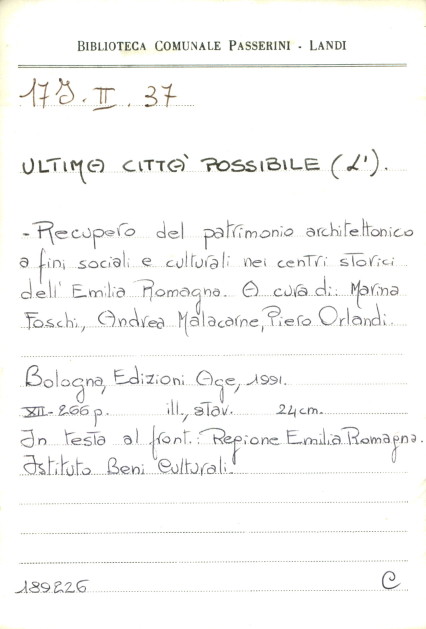 BIBLIOTECA COMUNALE PASSERINI - LANDI
17J. II. 37
ULTIMA CITTÀ POSSIBILE (L').
- Recupero del patrimonio architettonico
a fini sociali e culturali nei centri storici
dell'Emilia Romagna. A cura di: Marina
Foschi, Andrea Malacarne, Piero Orlandi.
Bologna, Edizioni Age, 1991.
XII-266 p. ill., stav. 24 cm.
In testa al front.: Regione Emilia Romagna.
Istituto Beni Culturali.
189226 C